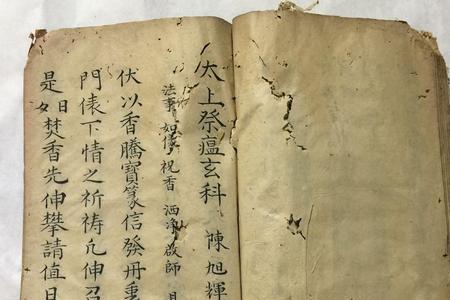 太上祭瘟玄科 陳旭輝
法事如儀 祝香 洒净 啟師
伏以香騰寶篆信發丹
門俵下情之祈祷凢伸召
是日焚香先伸攀請值日